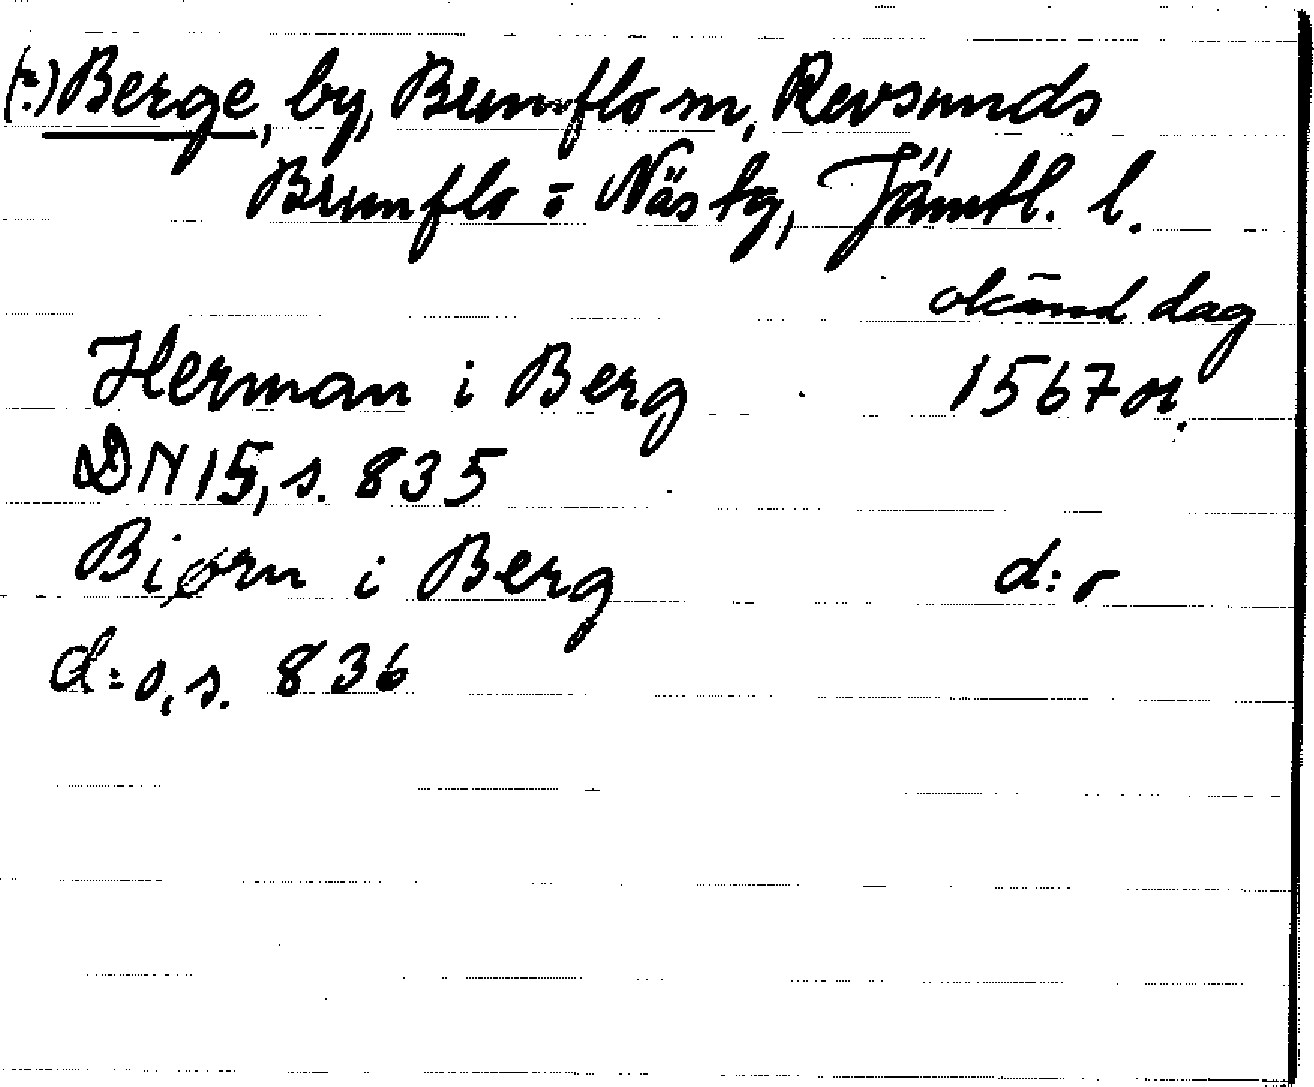 (?) Berge, by, Brunflo sn, Revsunds
Brunflo o Näs tg, Jämtl. l.
okänd dag
Herman i Berg 1567 or.
DN 15, s. 835
Biørn i Berg d:o
d:o, s. 836